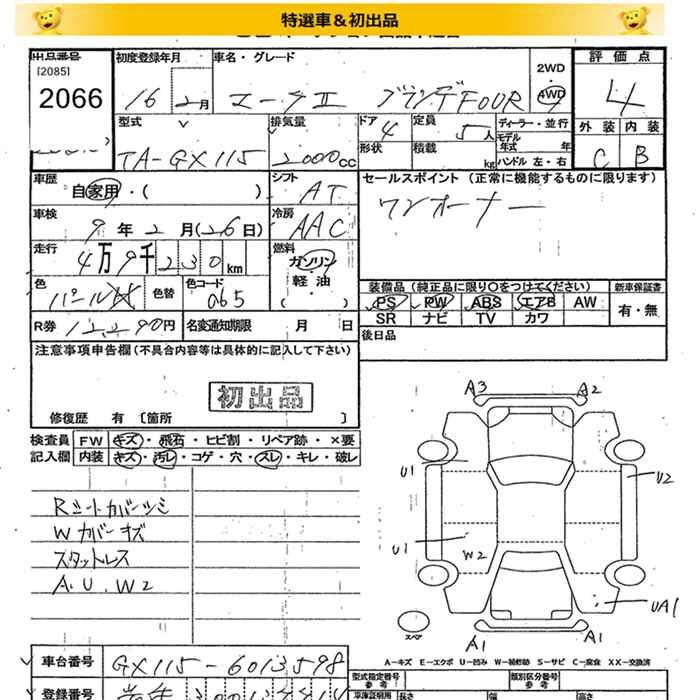 特選車＆初出品
出品番号 初度登録年月 車名・グレード 2WD 4WD 評価点
[2085]
2066 16 2月 マークII グランデFOUR 4
型式 排気量 ドア 定員 ディーラー・並行 外装 内装
TA-GX115 2000cc 4 5人 モデル年式 年 C B
形状 積載 kg ハンドル 左・右
車歴 シフト セールスポイント (正常に機能するものに限ります)
自家用・( ) AT ワンオーナー
車検 冷房
9年2月(26日) AAC
走行 燃料
4万9千230km ガソリン・軽油・( )
色 色替 色コード 装備品 (純正品に限り○をつけてください) 新車保証書
パール 065 PS PW ABS エアB AW 有・無
SR ナビ TV カワ
R券 12,290円 名変通知期限 月 日 後日品
注意事項申告欄 (不具合内容等は具体的に記入して下さい)
初出品
修復歴 有 〔箇所 〕
検査員 FW キズ・飛石・ヒビ割・リペア跡・×要
記入欄 内装 キズ・汚レ・コゲ・穴・スレ・キレ・破レ
Rシートカバーツミ
Wカバーキズ
スタットレス
A.U.W2
A3 A2
U1 U2
U1 W2
UA1
スペア A1 A1
A-キズ E-エクボ U-凹み W-補修跡 S-サビ C-腐食 XX-交換済
車台番号 GX115-6013598 型式指定番号 参考 類別区分番号 参考
登録番号 冷凍証明用 参考 長さ 幅 高さ